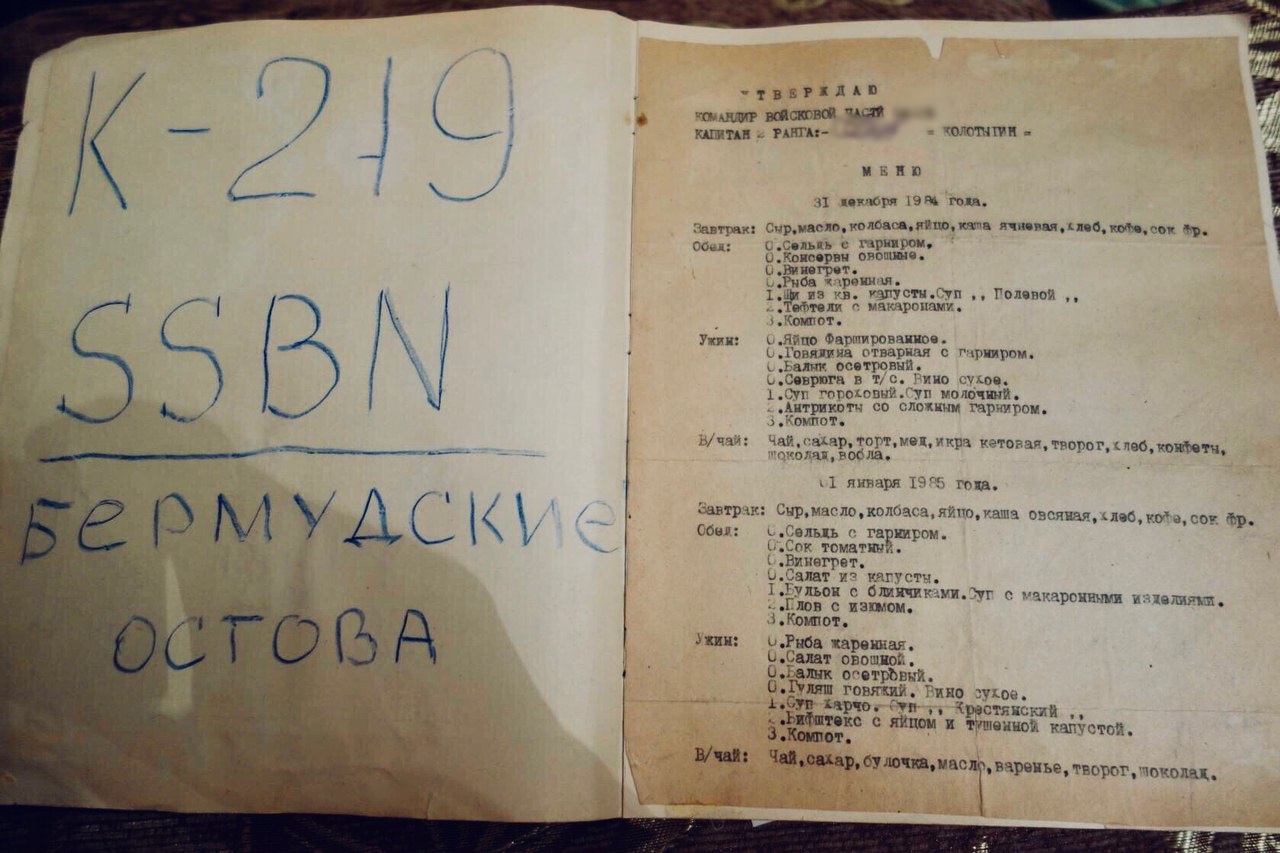 К-219
SSBN
БЕРМУДСКИЕ
ОСТОВА
УТВЕРЖДАЮ
КОМАНДИР ВОЙСКОВОЙ ЧАСТИ
КАПИТАН 2 РАНГА:- = КОЛОТЫГИН =
МЕНЮ
31 декабря 1984 года.
Завтрак: Сыр,масло,колбаса,яйцо,каша ячневая,хлеб,кофе,сок фр.
Обед: 0.Сельдь с гарниром.
0.Консервы овощные.
0.Винегрет.
0.Рыба жаренная.
1.Щи из кв. капусты.Суп ,, Полевой ,,
2.Тефтели с макаронами.
3.Компот.
Ужин: 0.Яйцо Фаршированное.
0.Говядина отварная с гарниром.
0.Балык осетровый.
0.Севрюга в т/с. Вино сухое.
1.Суп гороховый.Суп молочный.
2.Антрикоты со сложным гарниром.
3.Компот.
В/чай: Чай,сахар,торт,мед,икра кетовая,творог,хлеб,конфеты,
шоколад,вобла.
01 января 1985 года.
Завтрак: Сыр,масло,колбаса,яйцо,каша овсяная,хлеб,кофе,сок фр.
Обед: 0.Сельдь с гарниром.
0.Сок томатный.
0.Винегрет.
0.Салат из капусты.
1.Бульон с блинчиками.Суп с макаронными изделиями.
2.Плов с изюмом.
3.Компот.
Ужин: 0.Рыба жаренная.
0.Салат овощной.
0.Балык осетровый.
0.Гуляш говяжий. Вино сухое.
1.Суп харчо. Суп ,, Крестянский ,,
2.Бифштекс с яйцом и тушенной капустой.
3.Компот.
В/чай: Чай,сахар,булочка,масло,варенье,творог,шоколад.